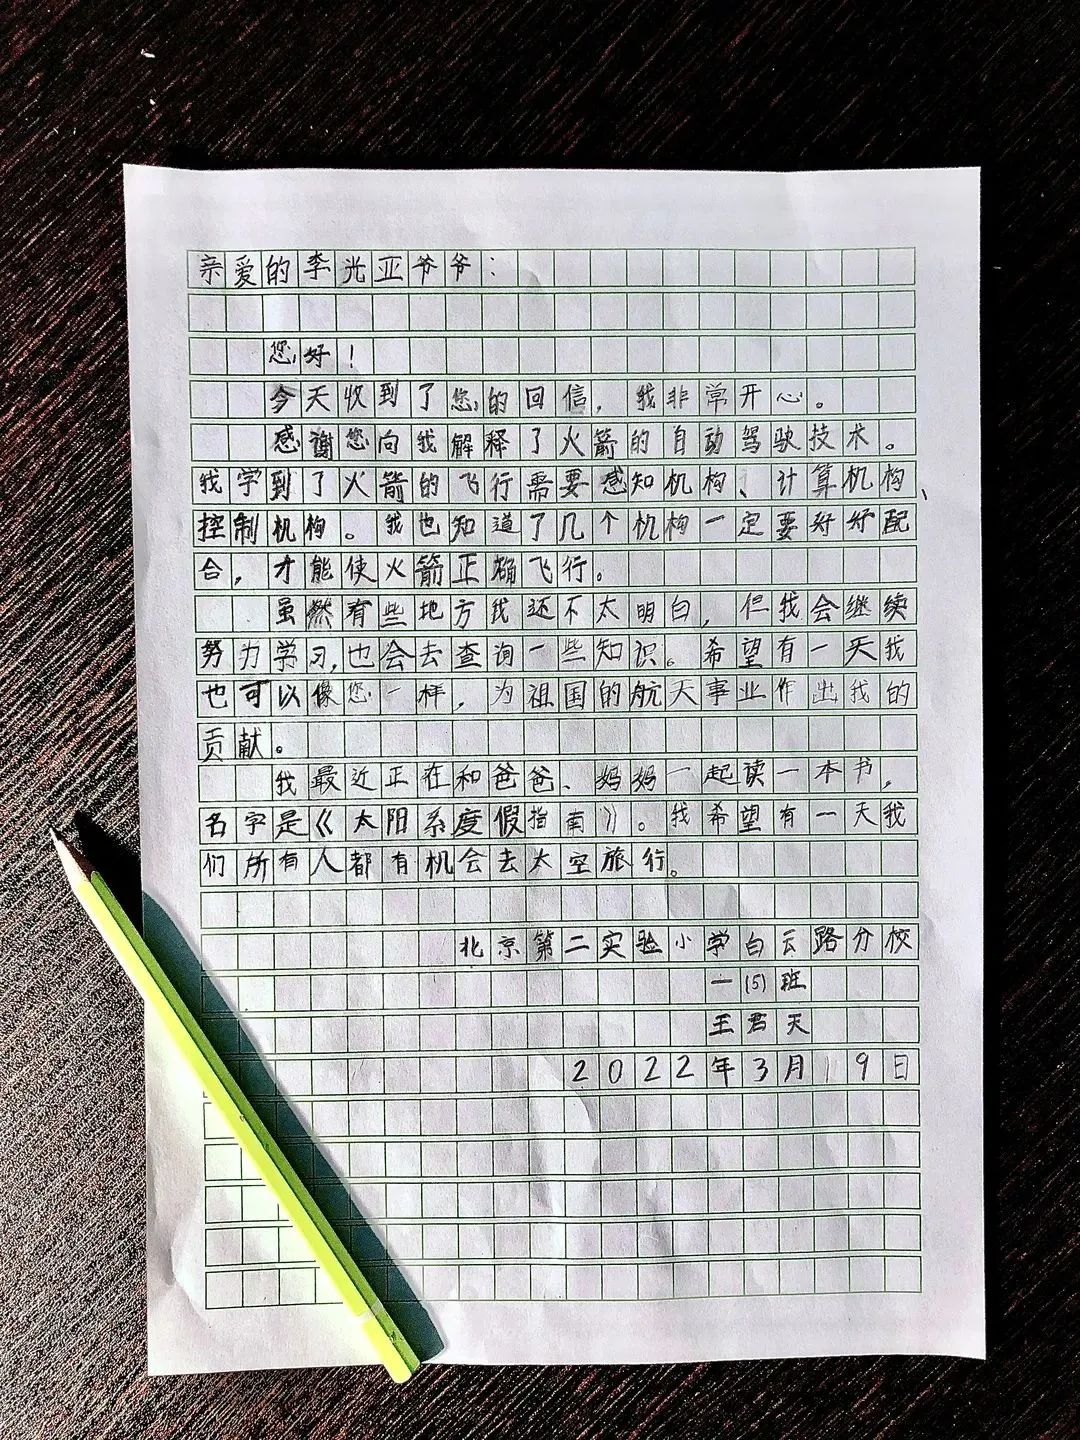 亲爱的李光亚爷爷：
您好！
今天收到了您的回信，我非常开心。
感谢您向我解释了火箭的自动驾驶技术。
我学到了火箭的飞行需要感知机构、计算机构、
控制机构。我也知道了几个机构一定要好好配
合，才能使火箭正确飞行。
虽然有些地方我还不太明白，但我会继续
努力学习，也会去查询一些知识。希望有一天我
也可以像您一样，为祖国的航天事业作出我的
贡献。
我最近正在和爸爸、妈妈一起读一本书，
名字是《太阳系度假指南》。我希望有一天我
们所有人都有机会去太空旅行。
北京第二实验小学白云路分校
一(5)班
王君天
2022年3月19日